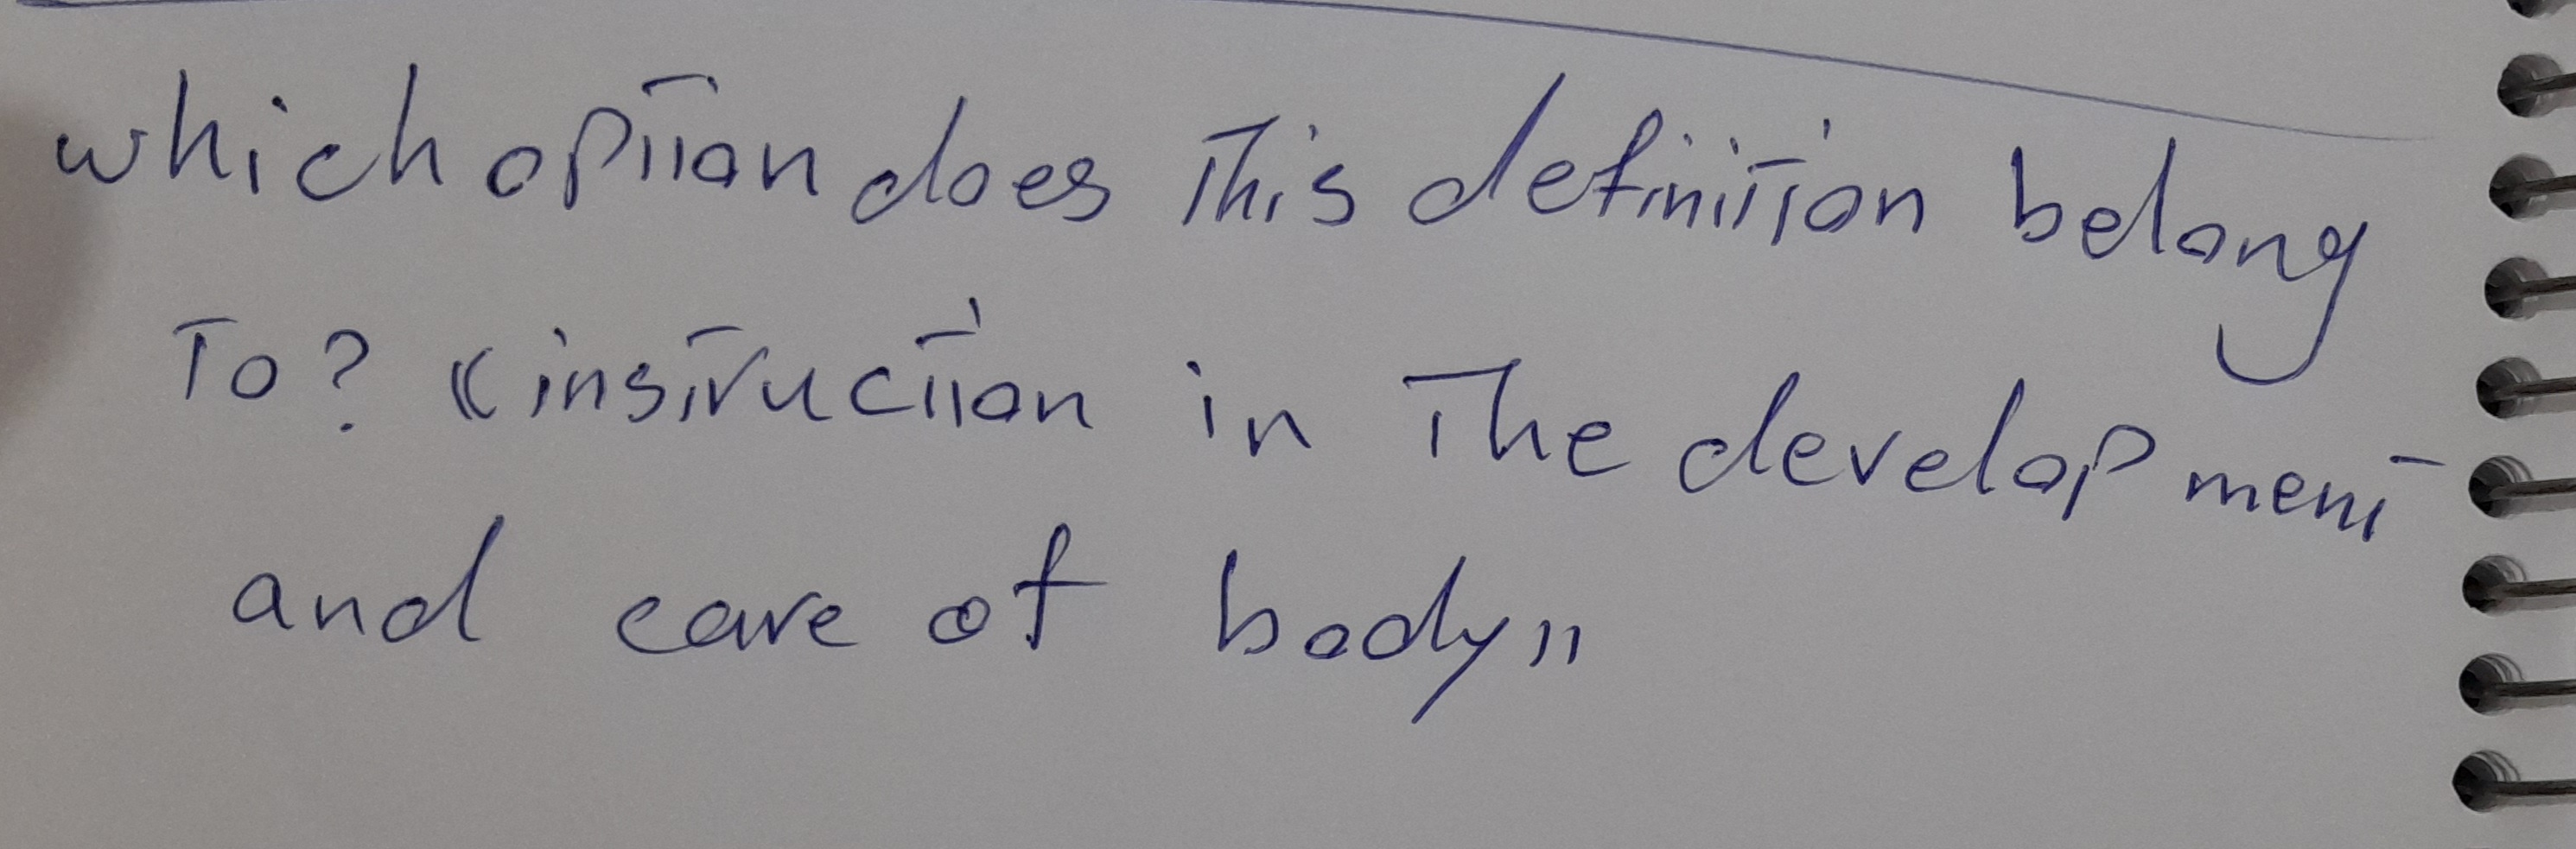 which option does This definition belong
To? « instruction in The development
and care of body "